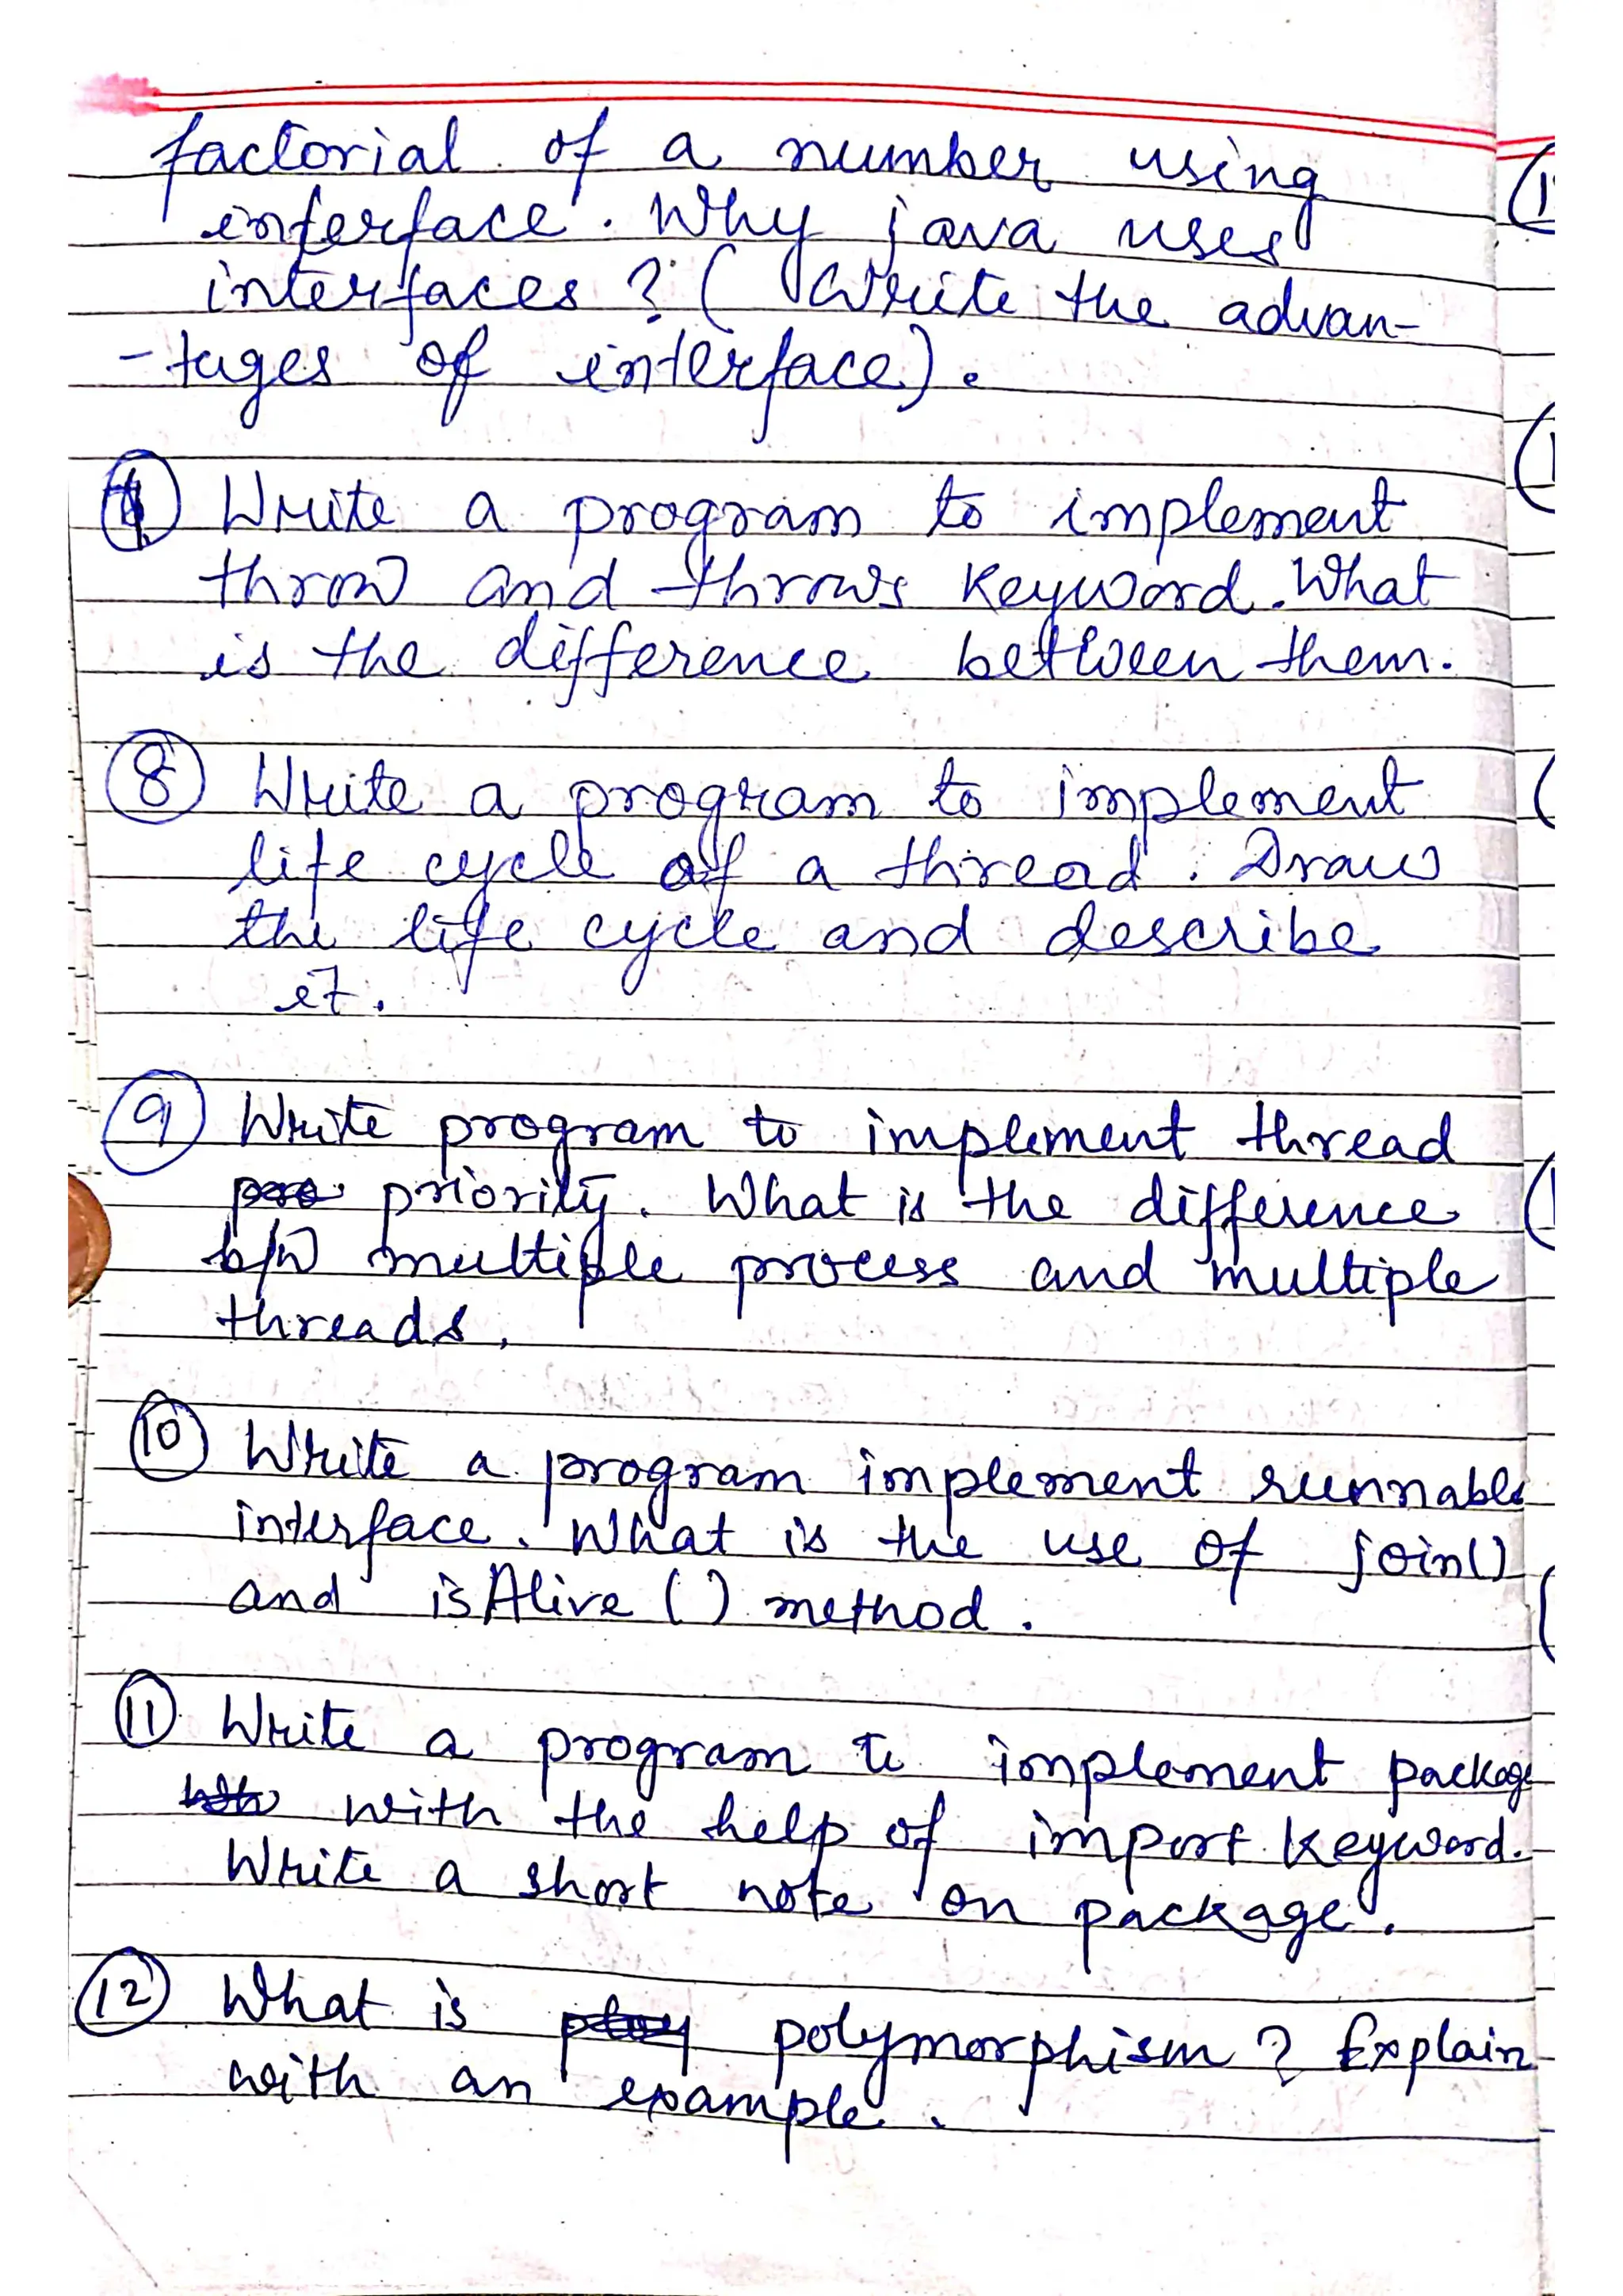 factorial of a number using
interface. Why java uses
interfaces ? ( Write the advan-
-tages of interface).
Write a program to implement
throw and throws keyword. What
is the difference between them.
8 Write a program to implement
life cycle of a thread. Draw
the life cycle and describe
it.
9 Write program to implement thread
priority. What is the difference
b/w multiple process and multiple
threads.
10 Write a program implement runnable
interface. What is the use of join()
and isAlive () method.
11 Write a program to implement package
with the help of import keyword.
Write a short note on package.
12 What is polymorphism ? Explain
with an example.